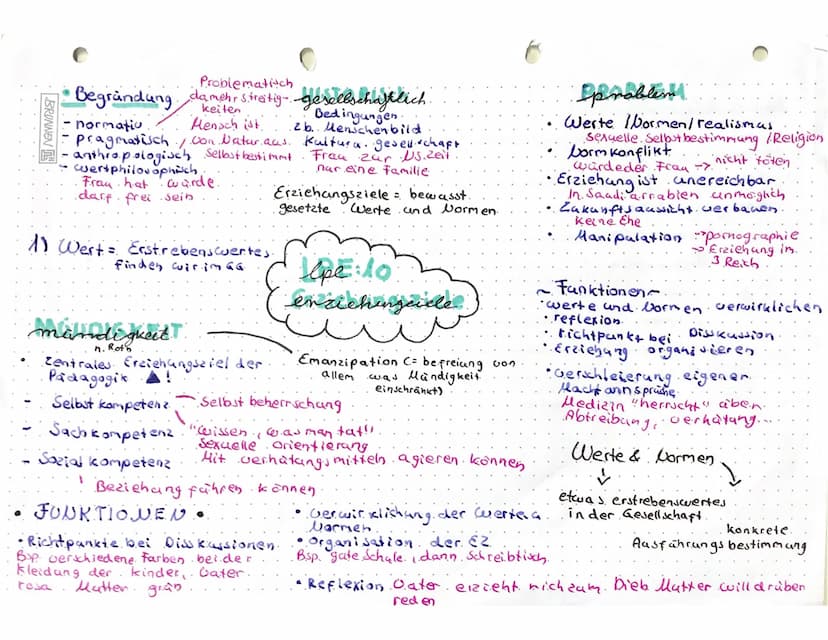 BRUNNEN
• Begründung
- normativ
- pragmatisch
- anthropologisch
- wertphilosophisch
Frau hat würde
darf frei sein
Problematisch
da mehr streitig-
keiten
Mensch ist
von Natur aus
Selbstbestimmt
HISTORISCH
gesellschaftlich
Bedingungen
zb. Menschenbild
Kultura. gesellschaft
Frau zur Ns.zeit
nur eine Familie
Erziehungsziele = bewusst
gesetzte Werte und Normen
PROBLEM
problem
• Werte / Normen / realismus
Sexuelle Selbstbestimmung / Religion
• Normkonflikt
würde der Frau → nicht töten
• Erziehung ist unereichbar
In Saudi arrabien unmöglich
• Zukunftsaussicht verbauen
keine Ehe
• Manipulation → pornographie
→ Erziehung im
3 Reich
1) Wert = Erstrebenswertes
finden wir im GG
LPE:10
lpe
Erziehungsziele
erziehungsziele
MÜNDIGKEIT
mündigkeit
n. Roth
• Zentrales Erziehungsziel der
Pädagogik !
- Selbstkompetenz
Selbstbeherrschung
- Sachkompetenz
"wissen, was man tut"
sexuelle orientierung
Mit verhütungsmitteln agieren können
- Sozialkompetenz
Beziehung führen können
Emanzipation (= befreiung von
allem was Mündigkeit
einschränkt)
~ Funktionen ~
• werte und Normen verwirklichen
• reflexion
• richtpunkt bei Disskussion
• Erziehung organisieren
• verschleierung eigener
Machtansprüche
Medizin "herrscht" üben
Abtreibung, verhütung...
Werte & Normen
etwas erstrebenswertes
in der Gesellschaft
konkrete
Ausführungsbestimmung
• FUNKTIONEN •
• Richtpunkte bei Disskussionen
Bsp verschiedene Farben bei der
Kleidung der kinder, Vater
rosa Mutter grün
• verwirklichung der Werte u
Normen
• Organisation der EZ
Bsp. gute Schule, dann Schreibtisch
• Reflexion Vater erzieht mich zum Dieb Mutter will drüber
reden